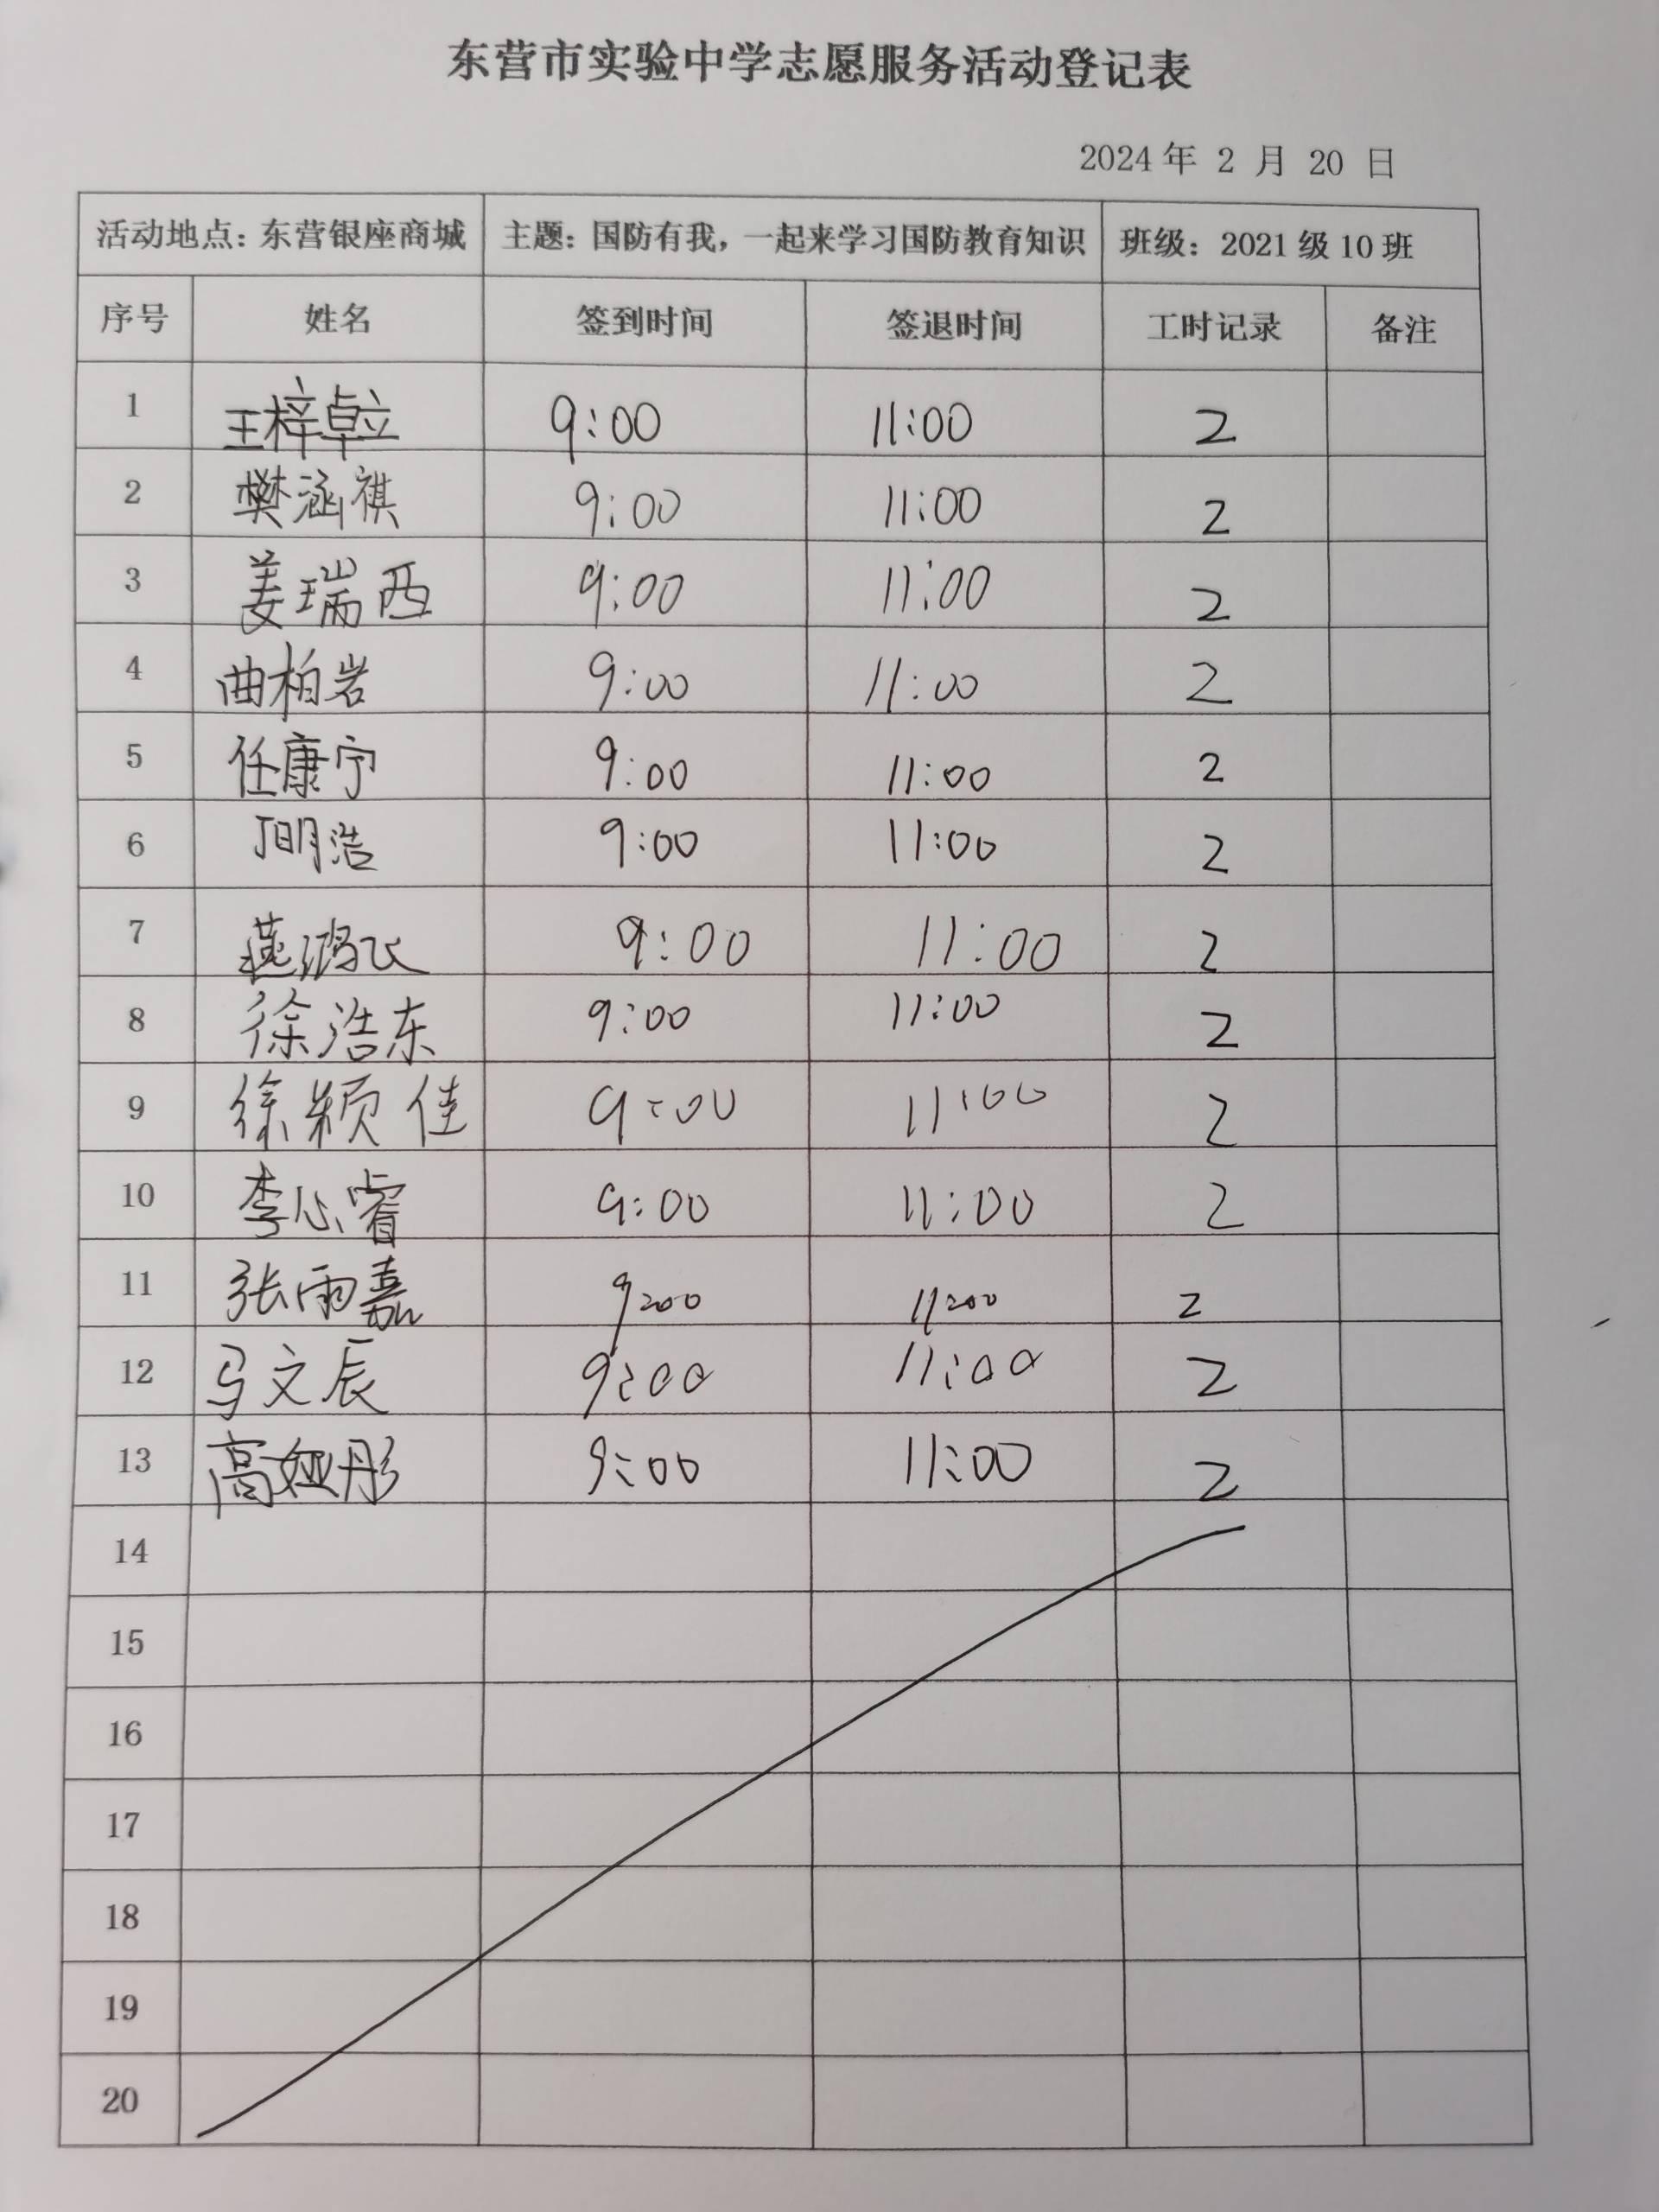 东营市实验中学志愿服务活动登记表
2024年 2 月 20 日
活动地点：东营银座商城 主题：国防有我，一起来学习国防教育知识 班级：2021级10班
序号 姓名 签到时间 签退时间 工时记录 备注
1 王梓卓立 9:00 11:00 2
2 樊涵祺 9:00 11:00 2
3 姜瑞西 9:00 11:00 2
4 曲柏岩 9:00 11:00 2
5 任康宁 9:00 11:00 2
6 丁明浩 9:00 11:00 2
7 燕鸿飞 9:00 11:00 2
8 徐浩东 9:00 11:00 2
9 徐颖佳 9:00 11:00 2
10 李心睿 9:00 11:00 2
11 张雨嘉 9:00 11:00 2
12 马文辰 9:00 11:00 2
13 高娅彤 9:00 11:00 2
14
15
16
17
18
19
20